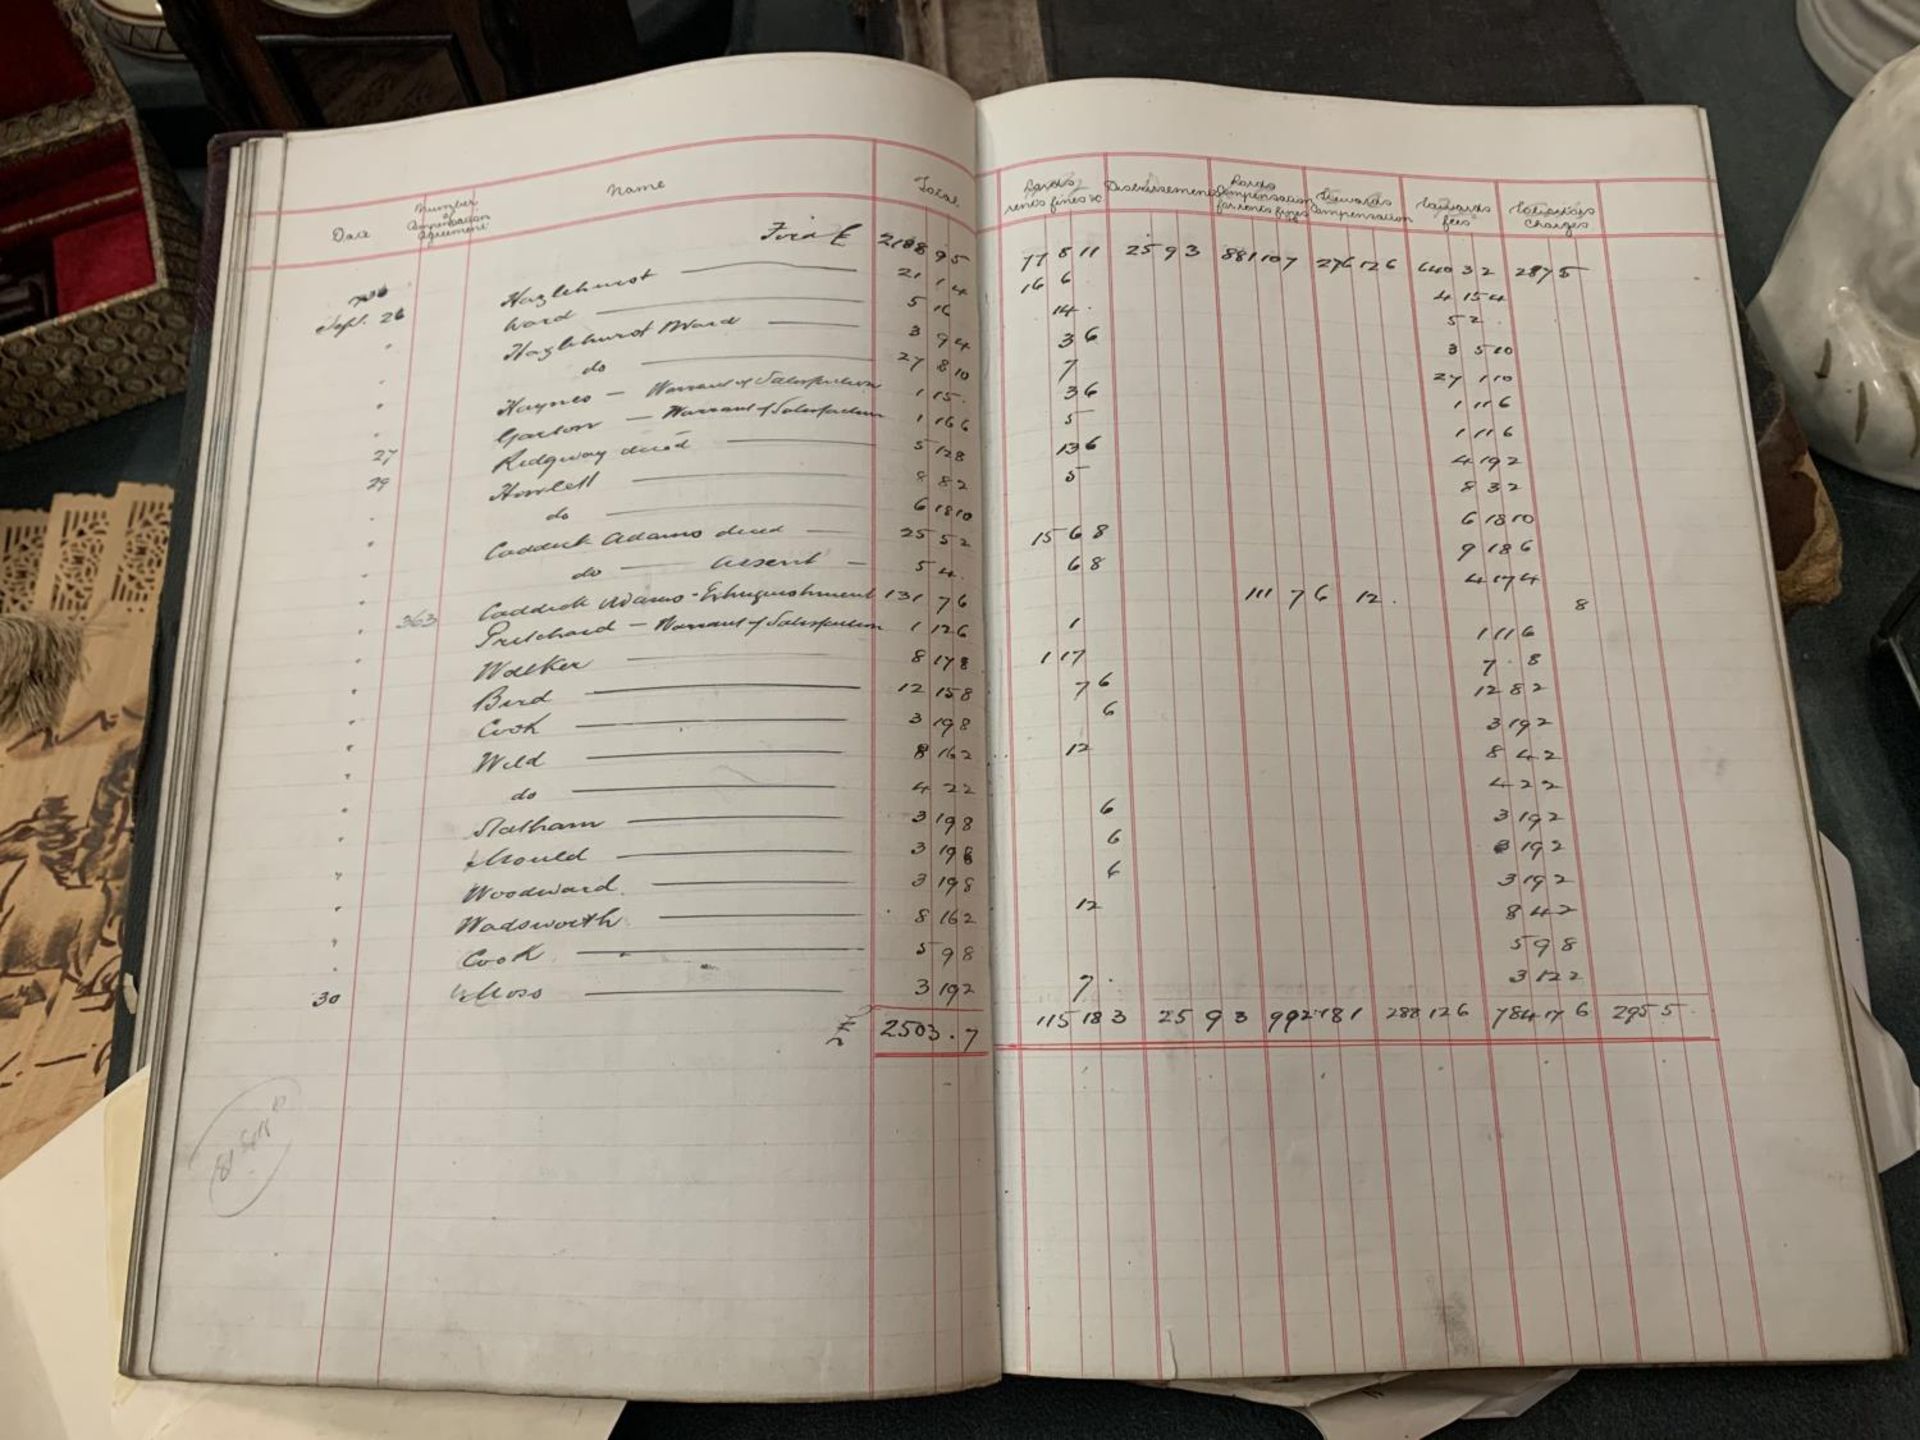 Date Number of Compensation Agreement Name Total Lords rents fines &c Disbursements Lords Compensation for rents fines Stewards Compensation Stewards fees Valuation Charges
2188 9 5 77 8 11 25 9 3 881 10 7 276 12 6 640 3 2 287 5
Sept. 26 Hazlehurst 21 1 4 16 6 4 15 4
" Ward 5 16 14 . 5 2 .
" Hazlehurst Ward 3 9 4 3 6 3 5 10
" do 27 8 10 7 27 1 10
" Haynes - Warrant of Satisfaction 1 15 . 3 6 1 11 6
" Garton - Warrant of Satisfaction 1 16 6 5 1 11 6
27 Ridgway deced 5 12 8 13 6 4 19 2
29 Howlett 8 8 2 5 8 3 2
" do 6 18 10 6 18 10
" Caddick Adams deced 25 5 2 15 6 8 9 18 6
" do - Assent - 5 4 . 6 8 4 17 4
" 363 Caddick Adams - Extinguishment 131 7 6 111 7 6 12 . 8
" Pritchard - Warrant of Satisfaction 1 12 6 1 1 11 6
" Walker 8 17 8 1 17 7 . 8
" Bird 12 15 8 7 6 12 8 2
" Cook 3 19 8 6 3 19 2
" Wild 8 16 2 12 8 4 2
" do 4 2 2 4 2 2
" Statham 3 19 8 6 3 19 2
" Mould 3 19 8 6 3 19 2
" Woodward 3 19 8 6 3 19 2
" Wadsworth 8 16 2 12 8 4 2
" Cook 5 9 8 5 9 8
30 Moss 3 19 2 7 . 3 12 2
£ 2503 . 7 115 18 3 25 9 3 992 18 1 288 12 6 784 17 6 295 5